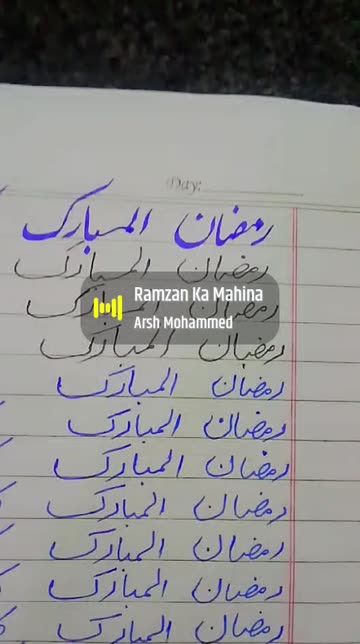 Day:
رمضان المبارک
رمضان المبارک
رمضان المبارک
Ramzan Ka Mahina
Arsh Mohammed
رمضان المبارک
رمضان المبارک
رمضان المبارک
رمضان المبارک
رمضان المبارک
رمضان المبارک
رمضان المبارک
رمضان المبارک